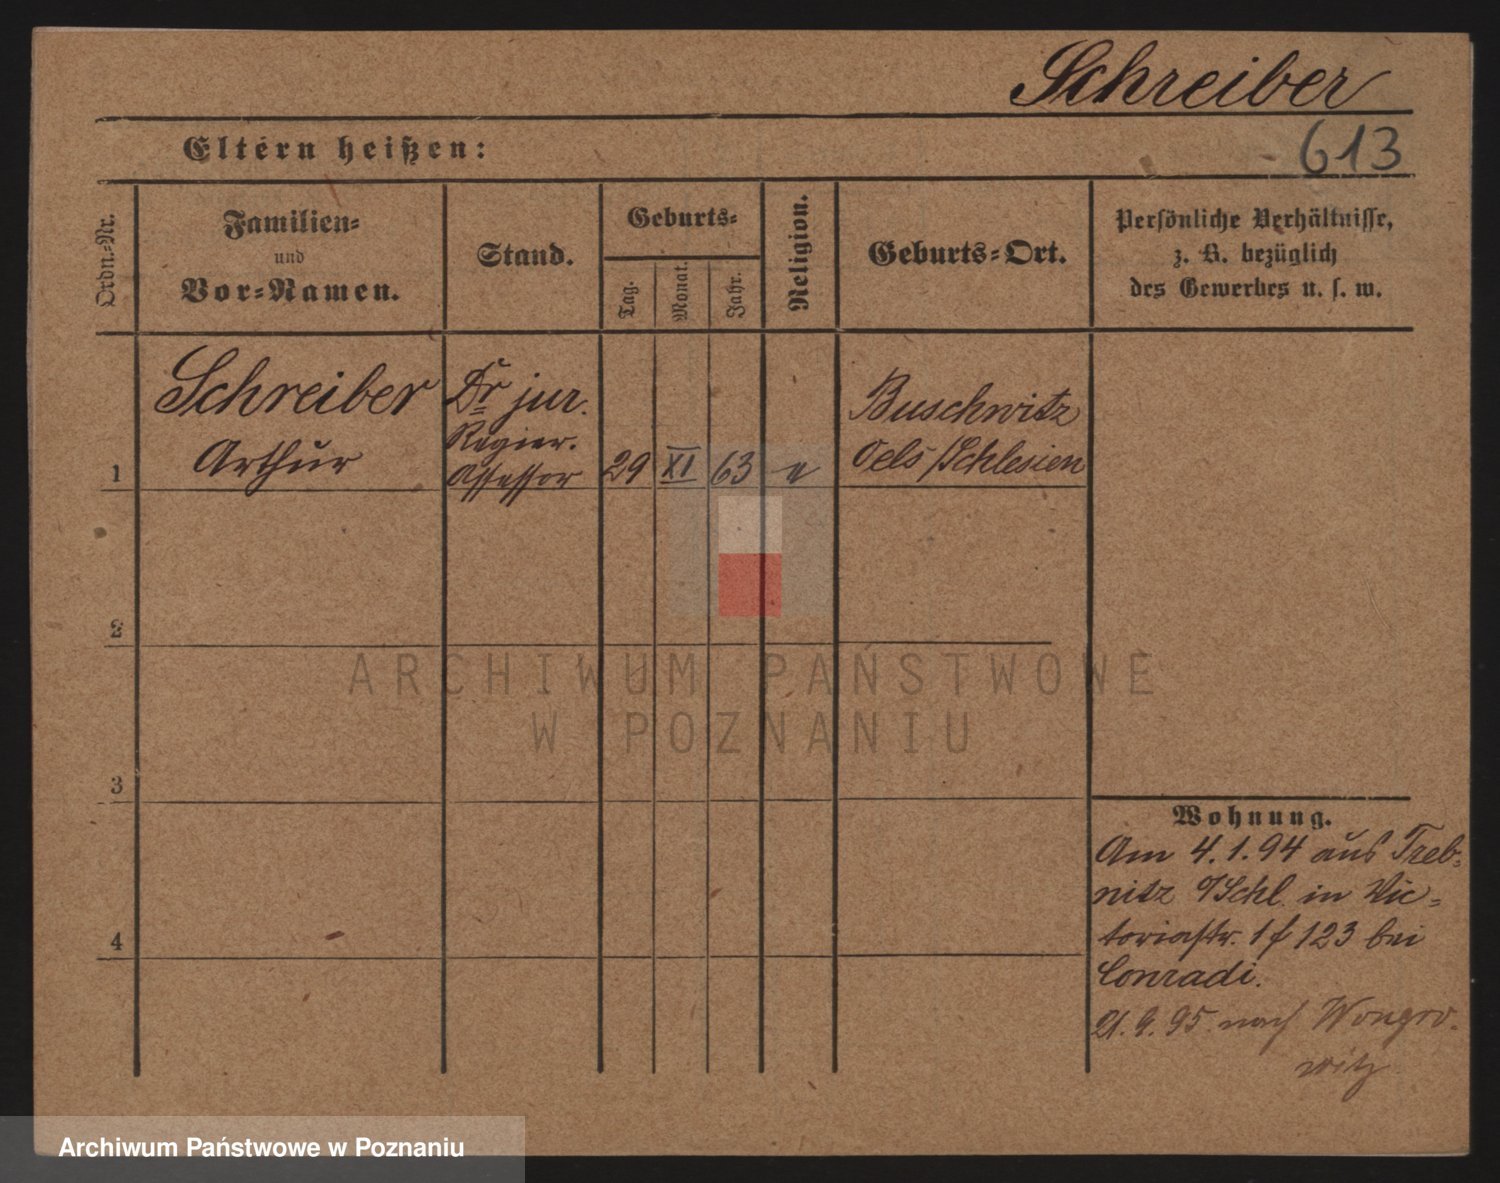 Schreiber
613
Eltern heißen:
Ordn.-Nr.
Familien-
und
Vor-Namen.
Stand.
Geburts-
Tag.
Monat.
Jahr.
Religion.
Geburts-Ort.
Persönliche Verhältnisse,
z. B. bezüglich
des Gewerbes u. s. w.
1
Schreiber
Arthur
Dr jur.
Regier.
Assessor
29
XI
63
e
Buschwitz
Oels /Schlesien
2
3
4
Wohnung.
Am 4.1.94 aus Treb-
nitz /Schl. in Vic-
toriastr. 1 f 123 bei
Conradi.
21.9.95 nach Wongro-
witz
ARCHIWUM PAŃSTWOWE
W POZNANIU
Archiwum Państwowe w Poznaniu